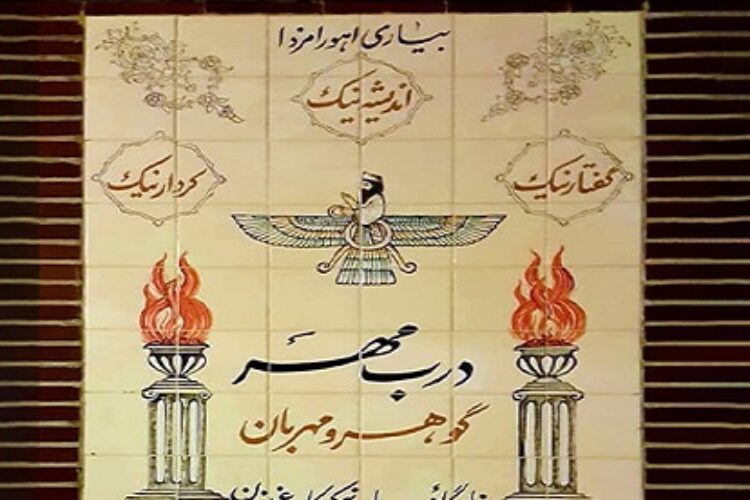 بیاری اهورامزدا
اندیشه نیک
گفتار نیک
کردار نیک
درب مهر
گوهر و مهربان